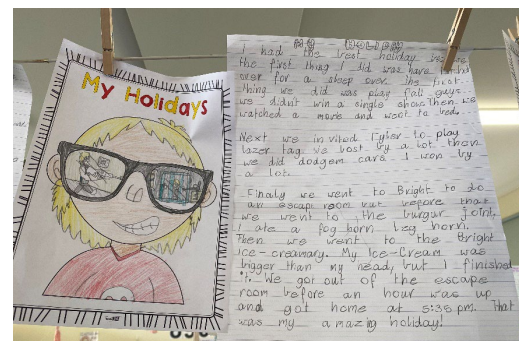 My Holidays
MY HOLIDAY
I had the best holiday because
the first thing I did was have
over for a sleep over the first
thing we did was play fall guys
we didn't win a single show. Then we
watched a movie and went to bed.
Next we invited Tyler to play
lazer tag we lost by a lot then
we did dodgem cars I won by
a lot.
Finaly we went to Bright to do
an escape room but before that
we went to the burgur joint,
I ate a fog horn leg horn.
Then we went to the Bright
ice-creamary. My Ice-Cream was
bigger than my head, but I finished
it. We got out of the escape
room before an hour was up
and got home at 5:35 pm. That
was my amazing holiday!